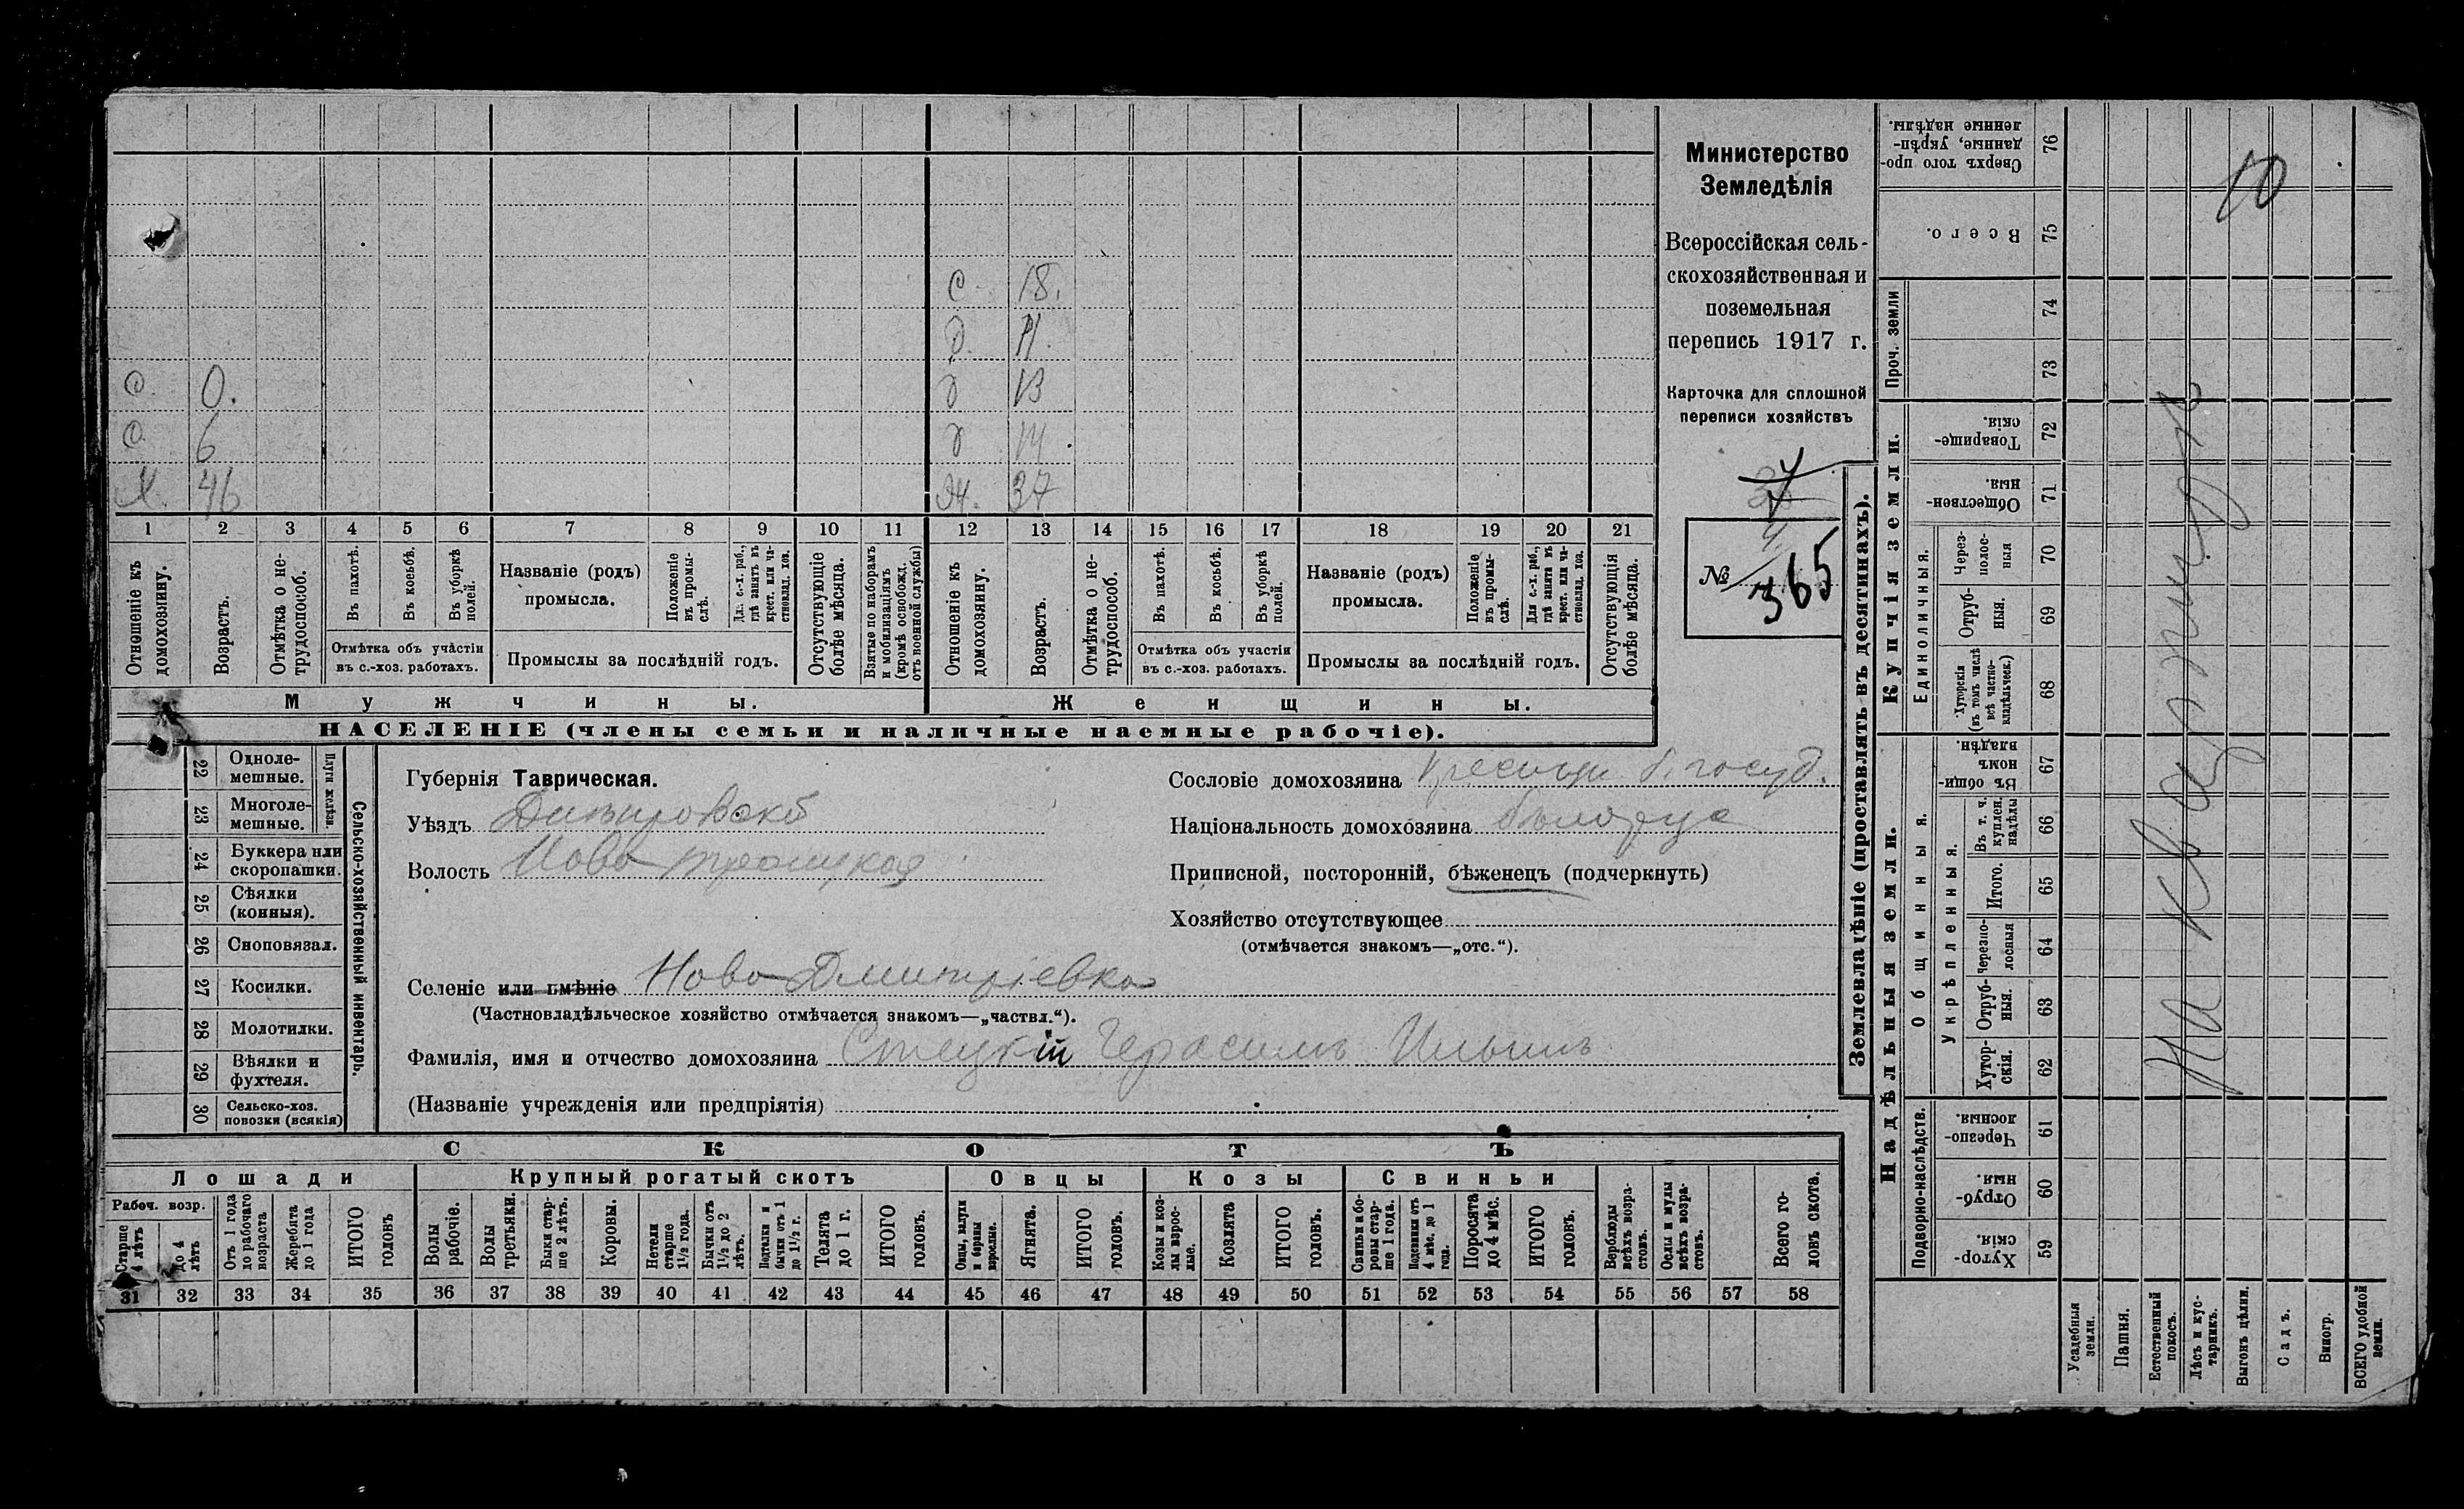 О. 0.
О. 6
Х. 46
С. 18.
Д. 11.
Д 13
Д 14.
Ж. 37
1 2 3 4 5 6 7 8 9 10 11 12 13 14 15 16 17 18 19 20 21
Отношеніе къ домохозяину.
Возрастъ.
Отмѣтка о не-трудоспособ.
Въ пахотѣ.
Въ косьбѣ.
Въ уборкѣ полей.
Отмѣтка объ участіи
въ с.-хоз. работахъ.
Названіе (родъ)
промысла.
Положеніе въ промы-слѣ.
Для с.-х. раб., гдѣ занятъ въ крест. или ча-стновлад. хоз.
Промыслы за послѣдній годъ.
Отсутствующіе болѣе мѣсяца.
Взятые по наборамъ и мобилизаціямъ (кромѣ освобожд. отъ военной службы)
Отношеніе къ домохозяину.
Возрастъ.
Отмѣтка о не-трудоспособ.
Въ пахотѣ.
Въ косьбѣ.
Въ уборкѣ полей.
Отмѣтка объ участіи
въ с.-хоз. работахъ.
Названіе (родъ)
промысла.
Положеніе въ промы-слѣ.
Для с.-х. раб., гдѣ занята въ крест. или ча-стновлад. хоз.
Промыслы за послѣдній годъ.
Отсутствующія болѣе мѣсяца.
Мужчины. Женщины.
НАСЕЛЕНІЕ (члены семьи и наличные наемные рабочіе).
Министерство
Земледѣлія
Всероссійская сель-
скохозяйственная и
поземельная
перепись 1917 г.
Карточка для сплошной
переписи хозяйствъ
№ 365
22 Одноле-мешные.
23 Многоле-мешные.
Плуги желѣзн.
24 Буккера или скоропашки.
25 Сѣялки (конныя).
26 Сноповязал.
27 Косилки.
28 Молотилки.
29 Вѣялки и фухтеля.
30 Сельско-хоз. повозки (всякія)
Сельско-хозяйственный инвентарь.
Губернія Таврическая.
Уѣздъ Днѣпровскій
Волость Ново-троицкая
Сословіе домохозяина Крестьян. б. госуд.
Національность домохозяина бѣлорус
Приписной, посторонній, бѣженецъ (подчеркнуть)
Хозяйство отсутствующее
(отмѣчается знакомъ—„отс.“).
Селеніе или имѣніе Ново-Дмитріевка
(Частновладѣльческое хозяйство отмѣчается знакомъ—„частвл.“).
Фамилія, имя и отчество домохозяина Стецкій Герасимъ Ильинъ
(Названіе учрежденія или предпріятія)
СКОТЪ
Лошади Крупный рогатый скотъ Овцы Козы Свиньи
Рабоч. возр.
Старше 4 лѣтъ
до 4 лѣтъ
Отъ 1 года до рабочаго возраста
Жеребята до 1 года
ИТОГО головъ
Волы рабочіе.
Волы третьяки.
Быки стар-ше 2 лѣтъ.
Коровы.
Нетели старше 1½ года.
Бычки отъ 1½ до 2 лѣтъ.
Подтелки и бычки отъ 1 до 1½ г.
Телята до 1 г.
ИТОГО головъ.
Овцы, валухи и бараны взрослые.
Ягнята.
ИТОГО головъ.
Козы и коз-лы взрос-лые.
Козлята
ИТОГО головъ.
Свиньи и бо-ровы стар-ше 1 года.
Подсвинки отъ 4 мѣс. до 1 года.
Поросята до 4 мѣс.
ИТОГО головъ.
Верблюды всѣхъ возра-стовъ.
Ослы и мулы всѣхъ возра-стовъ.
Всего го-ловъ скота.
31 32 33 34 35 36 37 38 39 40 41 42 43 44 45 46 47 48 49 50 51 52 53 54 55 56 57 58
Землевладѣніе (проставлять въ десятинахъ).
Надѣльныя земли. Купчія земли.
Подворно-наслѣдств.
Общинныя.
Укрѣпленныя.
Единоличныя.
Проч. земли
Хутор-скія. 59
Отруб-ныя. 60
Черезпо-лосныя 61
Хутор-скія. 62
Отруб-ныя. 63
Черезпо-лосныя 64
Итого. 65
Въ т. ч. куплен. надѣлы 66
Въ общин-номъ владѣн. 67
Хуторскія (въ томъ числѣ всѣ частно-владѣльческ.) 68
Отруб-ныя. 69
Через-полос-ныя 70
Обществен-ныя. 71
Товарище-скія. 72
73
74
Всего. 75
Сверхъ того про-данные, укрѣп-ленные надѣлы. 76
Усадебныя земли.
Пашня.
Естественный покосъ.
Лѣсъ и кус-тарникъ.
Выгонъ цѣлин.
Садъ.
Виногр.
ВСЕГО удобной земли.
На квартирѣ
10